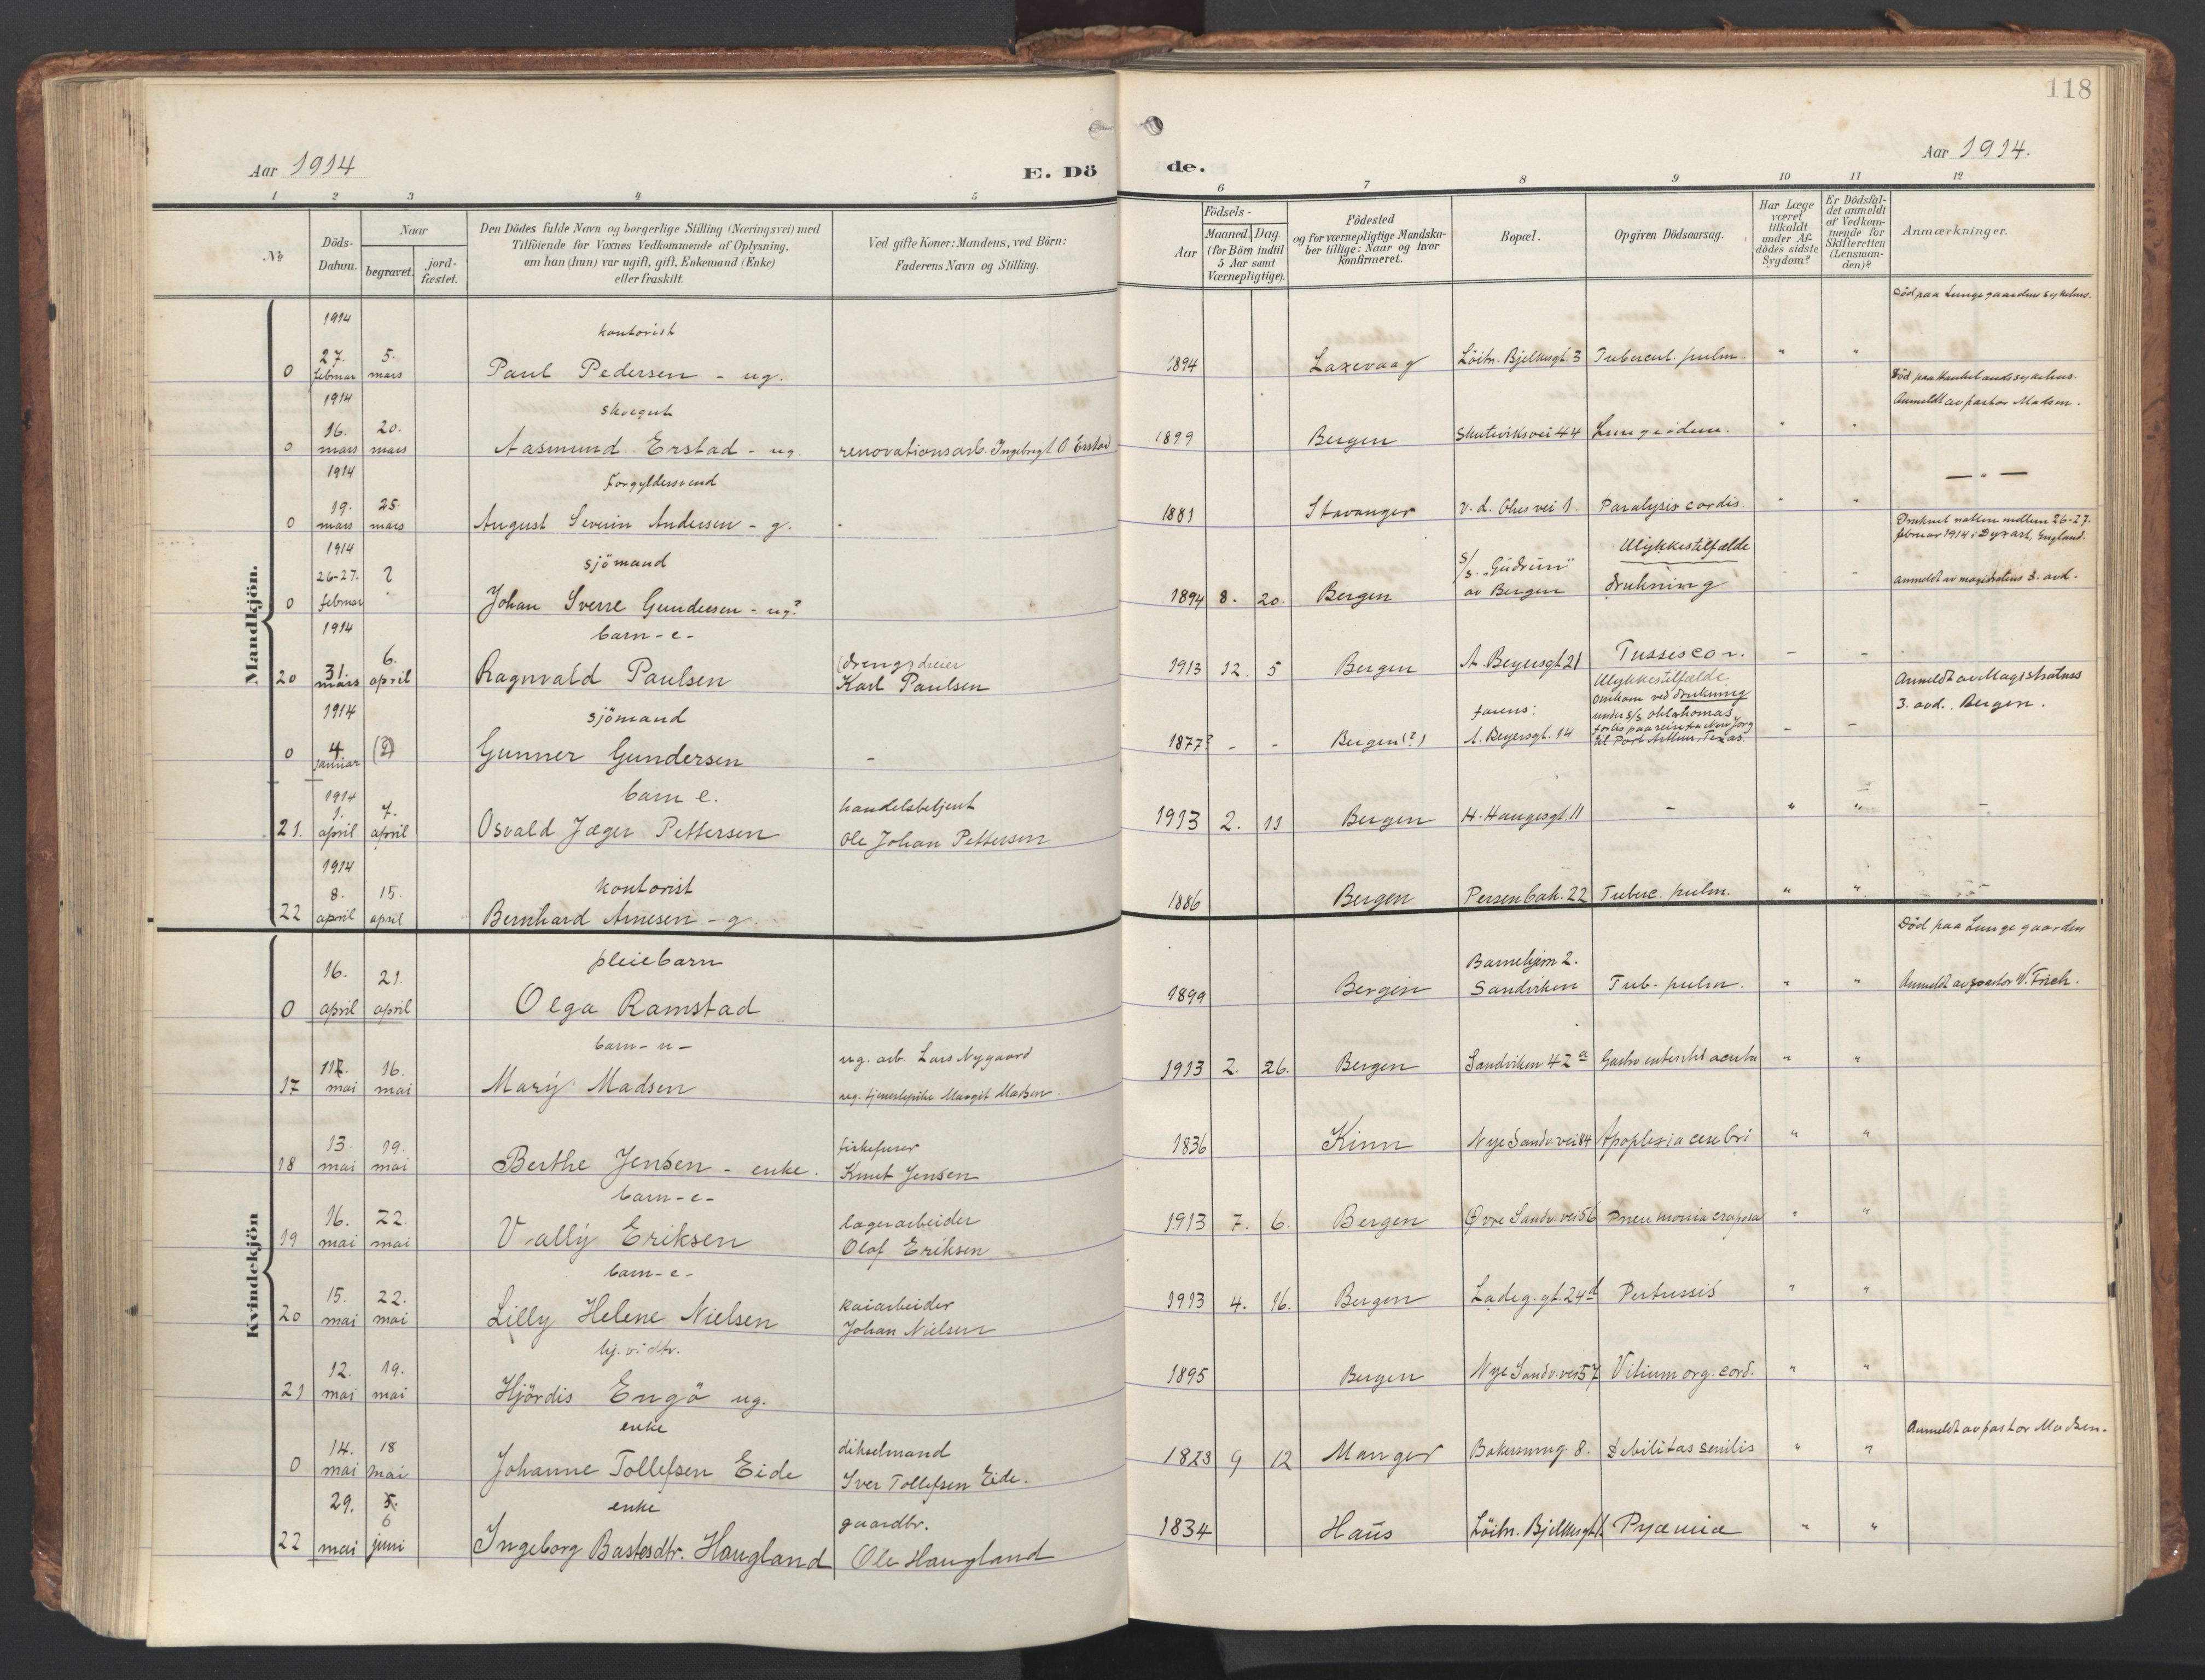 118
Aar 1914
E. Dö
de.
Aar 1914.
1 2 3 4 5 6 7 8 9 10 11 12
№
Döds-
Datum.
Naar
begravet.
jord-
fæstet.
Den Dödes fulde Navn og borgerlige Stilling (Næringsvei) med
Tilföiende for Voxnes Vedkommende af Oplysning,
om han (hun) var ugift, gift, Enkemand (Enke)
eller fraskilt.
Ved gifte Koner: Mandens, ved Börn:
Faderens Navn og Stilling.
Födsels-
Aar
Maaned. Dag.
(for Börn indtil
5 Aar samt
Værnepligtige).
Födested
og for værnepligtige Mandska-
ber tillige: Naar og hvor
Konfirmeret.
Bopæl.
Opgiven Dödsaarsag.
Har Læge
været
tilkaldt
under Af-
dödes sidste
Sygdom?
Er Dödsfal-
det anmeldt
af Vedkom-
mende for
Skifteretten
(Lensman-
den)?
Anmærkninger.
Mandkjön.
Död paa Lungegaardens sykehus.
1914
kontorist
0 27. februar 5. mars Paul Pedersen - ug. 1894 Laxevaag Löitn. Bjelkesgt. 3 Tubercul. pulm. " "
Död paa Haukelandssykehus.
1914
skoegut
Anmeldt av pastor Madsen.
0 16. mars 20. mars Aasmund Erstad - ug. renovationsarb. Ingebrigt O Erstad 1899 Bergen Skuteviksvei 44 Lungeödem. " "
1914
forgyldersvend
— " —
0 19. mars 25. mars August Severin Andersen - g. - 1881 Stavanger v. d. Ohes vei 1. Paralysis cordis. " "
Druknet natten mellem 26-27.
februar 1914 i Dysart, England.
1914
sjömand
Ulykkestilfælde
0 26-27. februar ? Johan Sverre Gundersen - ug? 1894 8. 20. Bergen S/S. "Gudrun" av Bergen drukning - -
anmeldt av magistratens 3. avd.
1914
barn - e -
20 31. mars 6. april Ragnvald Paulsen (dreng) dreier Karl Paulsen 1913 12. 5 Bergen A. Beyersgt 21 Tussis con. - -
Anmeldt av Magistratens
3. avd., Bergen.
1914
sjömand
Ulykkestilfælde
omkom ved drukning
under s/s Oklahomas
forlis paa reise fra New Jorg
til Port Arthur, Texas.
0 4. januar (?) Gunner Gundersen - 1877? - - Bergen (?) farens: A. Beyersgt. 14 - -
1914
barn e.
21. 1. april 7. april Osvald Jæger Pettersen handelsbetjent Ole Johan Pettersen 1913 2. 11 Bergen H. Haugesgt. 11 - " " -
1914
kontorist
22 8. april 15. april Bernhard Arnesen - g. 1886 Bergen Persenbak. 22 Tuberc. pulm. " "
Kvindekjön
Död paa Lungegaarden
pleiebarn
0 16. april 21. april Olga Ramstad 1899 Bergen Barnehjem 2. Sandviken Tub. pulm. " " Anmeldt av pastor W. Frich.
barn - u -
17 mai 16. mai Mary Madsen ug. arb. Lars Nygaard
ug. tjenestepike Margit Madsen. 1913 2. 26. Bergen Sandviken 42 a Gastro enteritis acuta " "
18 13. mai 19. mai Berthe Jensen - enke. fiskefører Knut Jensen 1836 Kinn Nye Sandv. vei 84 Apoplexia cerebri " "
barn - e -
19 16. mai 22. mai Vally Eriksen lagerarbeider Olaf Eriksen 1913 7. 6. Bergen Øvre Sandv. vei 56 Pneumonia cruposa " "
barn - e -
20 15. mai 22. mai Lilly Helene Nielsen kaiarbeider Johan Nielsen 1913 4. 16. Bergen Ladeg. gt. 24 d Pertussis " "
hj. v. dtr.
21 12. mai 19. mai Hjördis Engö ug. 1895 Bergen Nye Sandv. vei 57 Vitium org. cord. " "
enke
Anmeldt av pastor Madsen.
0 14. mai 18 mai Johanne Tollefsen Eide dikselmand Iver Tollefsen Eide. 1823 9 12 Manger Bakersmug. 8. debilitas senilis " "
enke
22 29. mai 6 juni Ingeborg Bastesdtr. Haugland gaardbr. Ole Haugland 1834 Haus Löitn. Bjelkesgt 1. Pyæmia " "